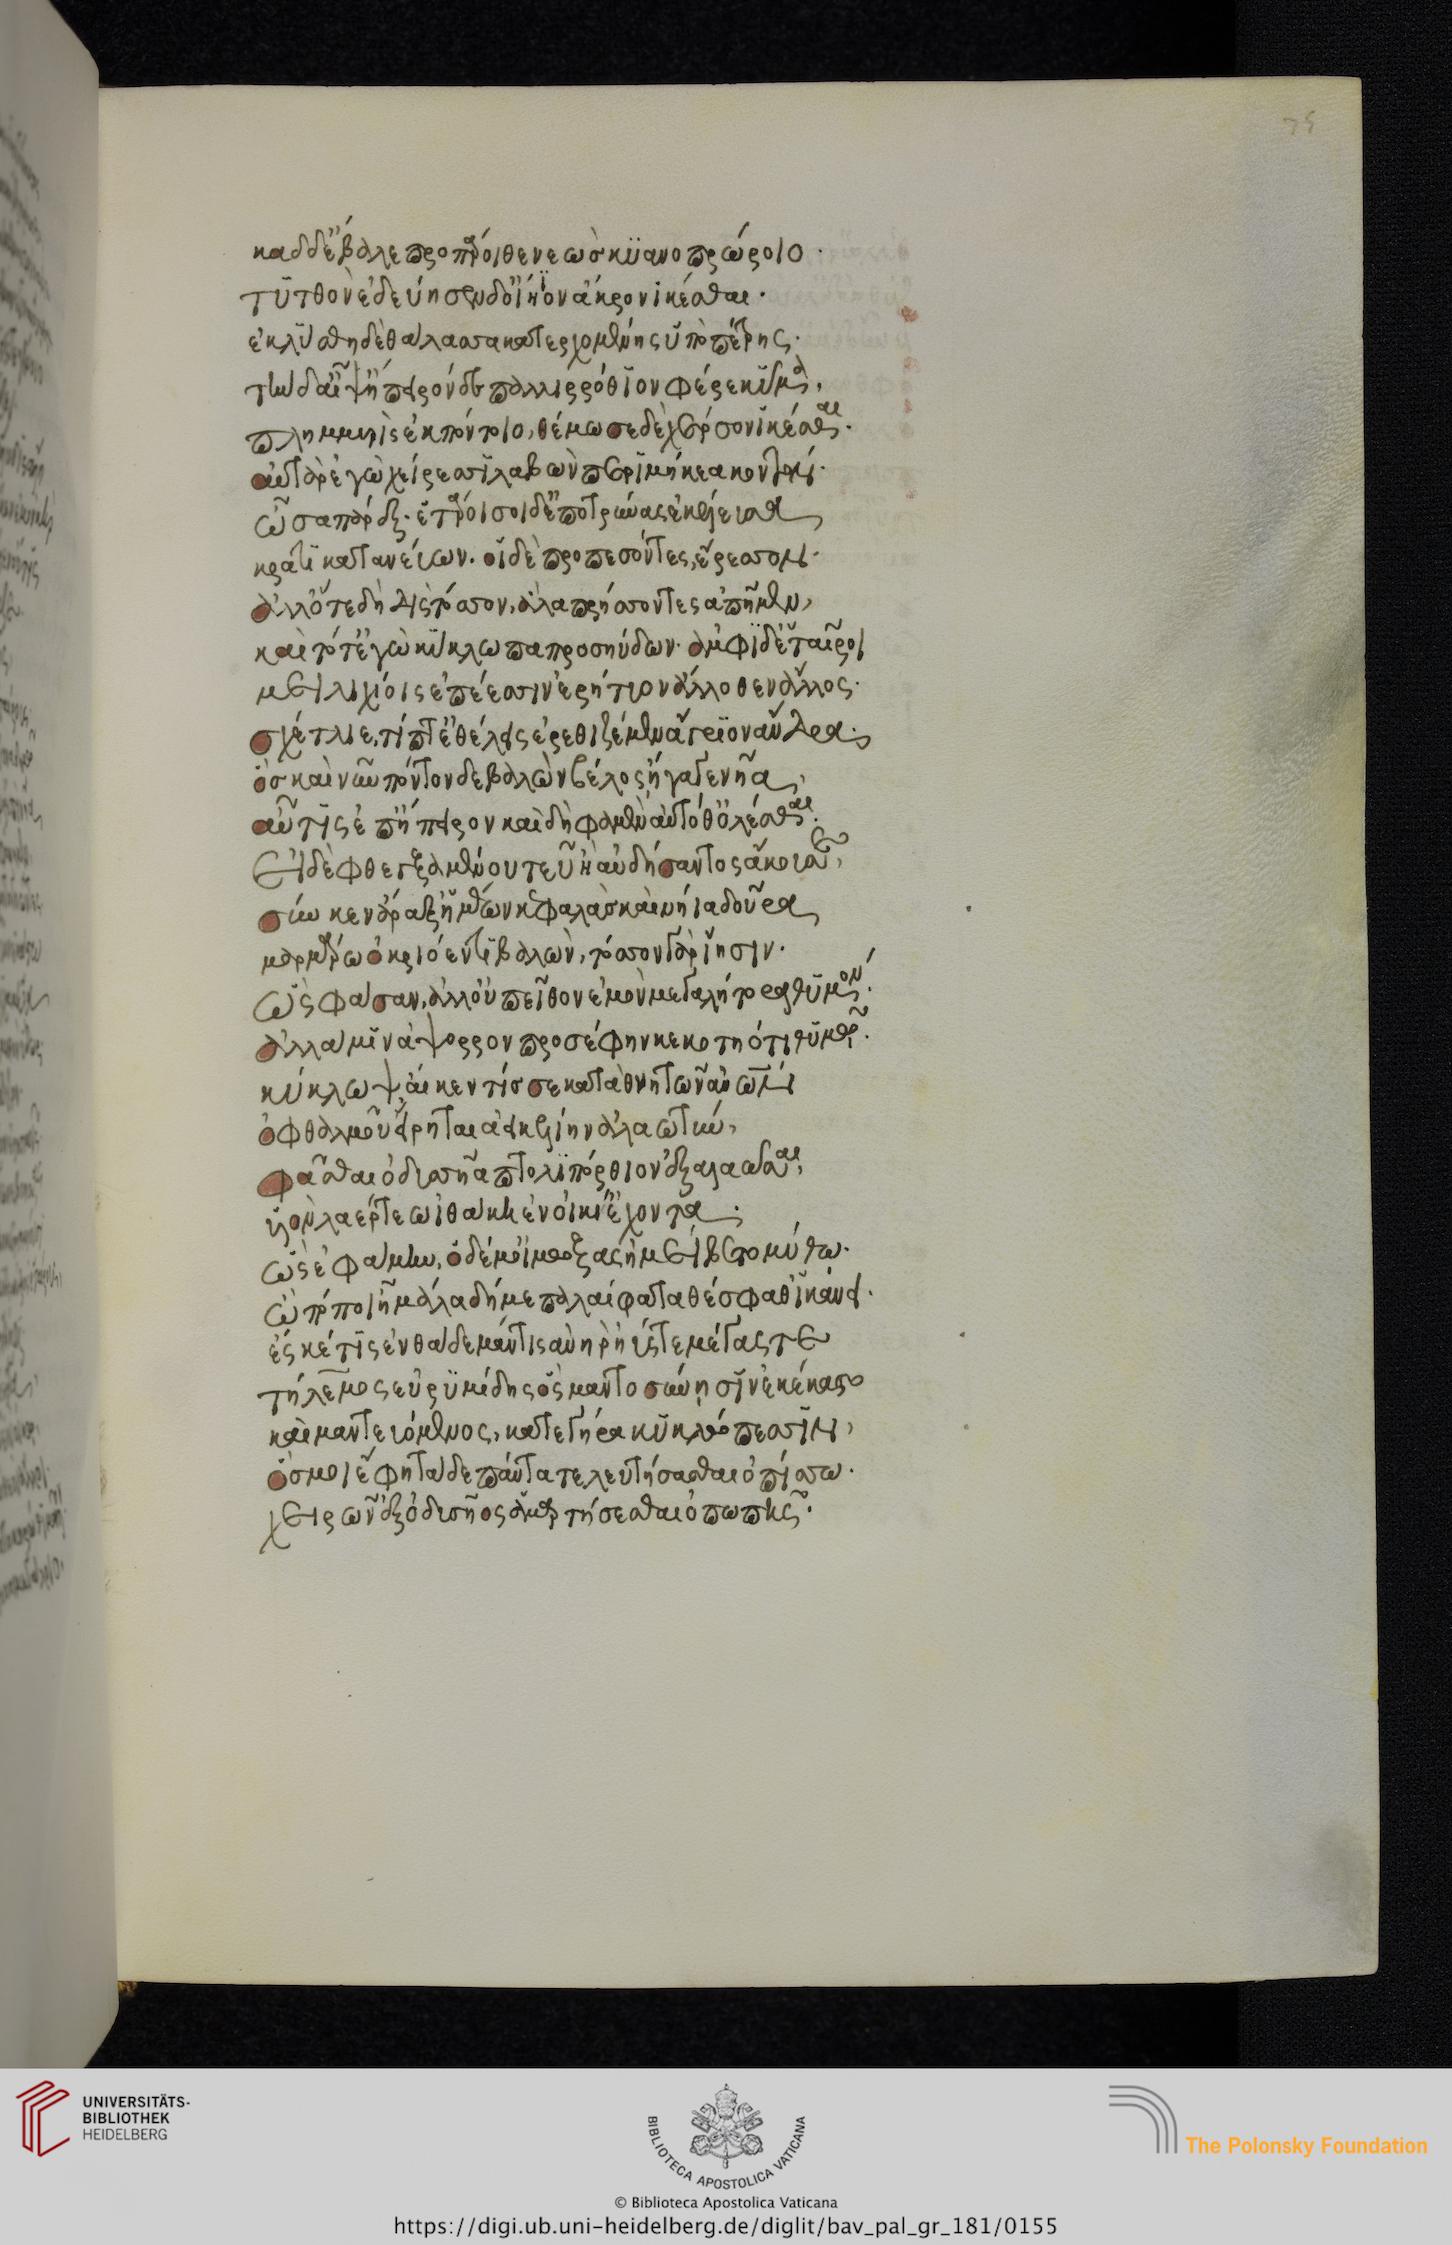 75
καδδ' ἔβαλε προπάροιθε νεὼσ κυανοπρώροιο·
τυτθὸν ἐδεύησεν δ' οἰήϊον ἄκρον ἱκέσθαι·
ἐκλύσθη δὲ θάλασσα κατερχομένης ὑπὸ πέτρης·
τὴν δ' αἶψ' ἤπειρόνδε παλιρρόθιον φέρε κῦμα,
πλημμυρὶς ἐκ πόντοιο, θέμωσε δὲ χέρσον ἱκέσθαι·
αὐτὰρ ἐγὼ χείρεσσι λαβὼν περιμήκεα κοντὸν·
ὦσα παρέξ· ἑτάροισοι δ' ἐποτρύνας ἐκέλευσα
κρατὶ κατανεύων· οἱ δὲ προπεσόντες, ἔρεσσον·
ἀλλ' ὅτε δὴ δὶς τόσσον, ἅλα πρήσσοντες ἀπῆμεν,
καὶ τότ' ἐγὼ κύκλωπα προσηύδων· ἀμφὶ δ' ἑταῖροι
μειλιχίοις ἐπέεσσιν ἐρήτυον ἄλλοθεν ἄλλος·
σχέτλιε, τίπτ' ἐθέλεις ἐρεθιζέμεν ἄγριον ἄνδρα·
ὁσ καὶ νῦν πόντον δε βαλὼν βέλος ἤγαγε νῆα,
αὖτις ἐπ' ἤπειρον καὶ δὴ φάμεν αὐτόθ' ὀλέσθαι·
εἰ δὲ φθεγξαμένου τευ ἢ αὐδήσαντος ἄκουσε,
σύν κεν ἄραξ' ἡμέων κεφαλὰσ καὶ νήϊα δοῦρα
μαρμάρω ὀκριόεντι βαλὼν, τόσσον γὰρ ἵησιν·
ὣς φάσαν, ἀλλ' οὐ πεῖθον ἐμὸν μεγαλήτορα θυμόν·
ἀλλά μιν ἄψορρον προσέφην κεκοτηότι θυμῶ·
κύκλωψ, αἴ κεν τίσ σε καταθνητῶν ἀνθρώπων
ὀφθαλμοῦ εἴρηται ἀεικελίην ἀλαωτύν,
φᾶσθαι ὀδυσσῆα πτολιπόρθιον ἐξαλαῶσαι,
υἱὸν λαέρτεω ἰθάκη ἐνοικί' ἔχοντα·
ὣς ἐφάμην, ὁ δέ μ' οἰμώξας ἠμείβετο μύθω·
ὢ πόποι ἦ μάλα δή με παλαίφατα θέσφαθ' ἱκάνει·
ἔς κέ τις ἐνθάδε μάντις ἀνὴρ ἠΰς τε μέγας τε
τήλεμος εὐρυμίδης ὃς μαντοσύνη συνεκέκαστο
καὶ μαντευόμενος, κατεγήρα κυκλώπεσσιν,
ὅσ μοι ἔφη τάδε πάντα τελευτήσασθαι ὀπίσσω·
χειρῶν ἐξ ὀδυσῆος ἁμαρτήσεσθαι ὀπωπῆς·
UNIVERSITÄTS-
BIBLIOTHEK
HEIDELBERG
BIBLIOTECA APOSTOLICA VATICANA
© Biblioteca Apostolica Vaticana
The Polonsky Foundation
https://digi.ub.uni-heidelberg.de/diglit/bav_pal_gr_181/0155